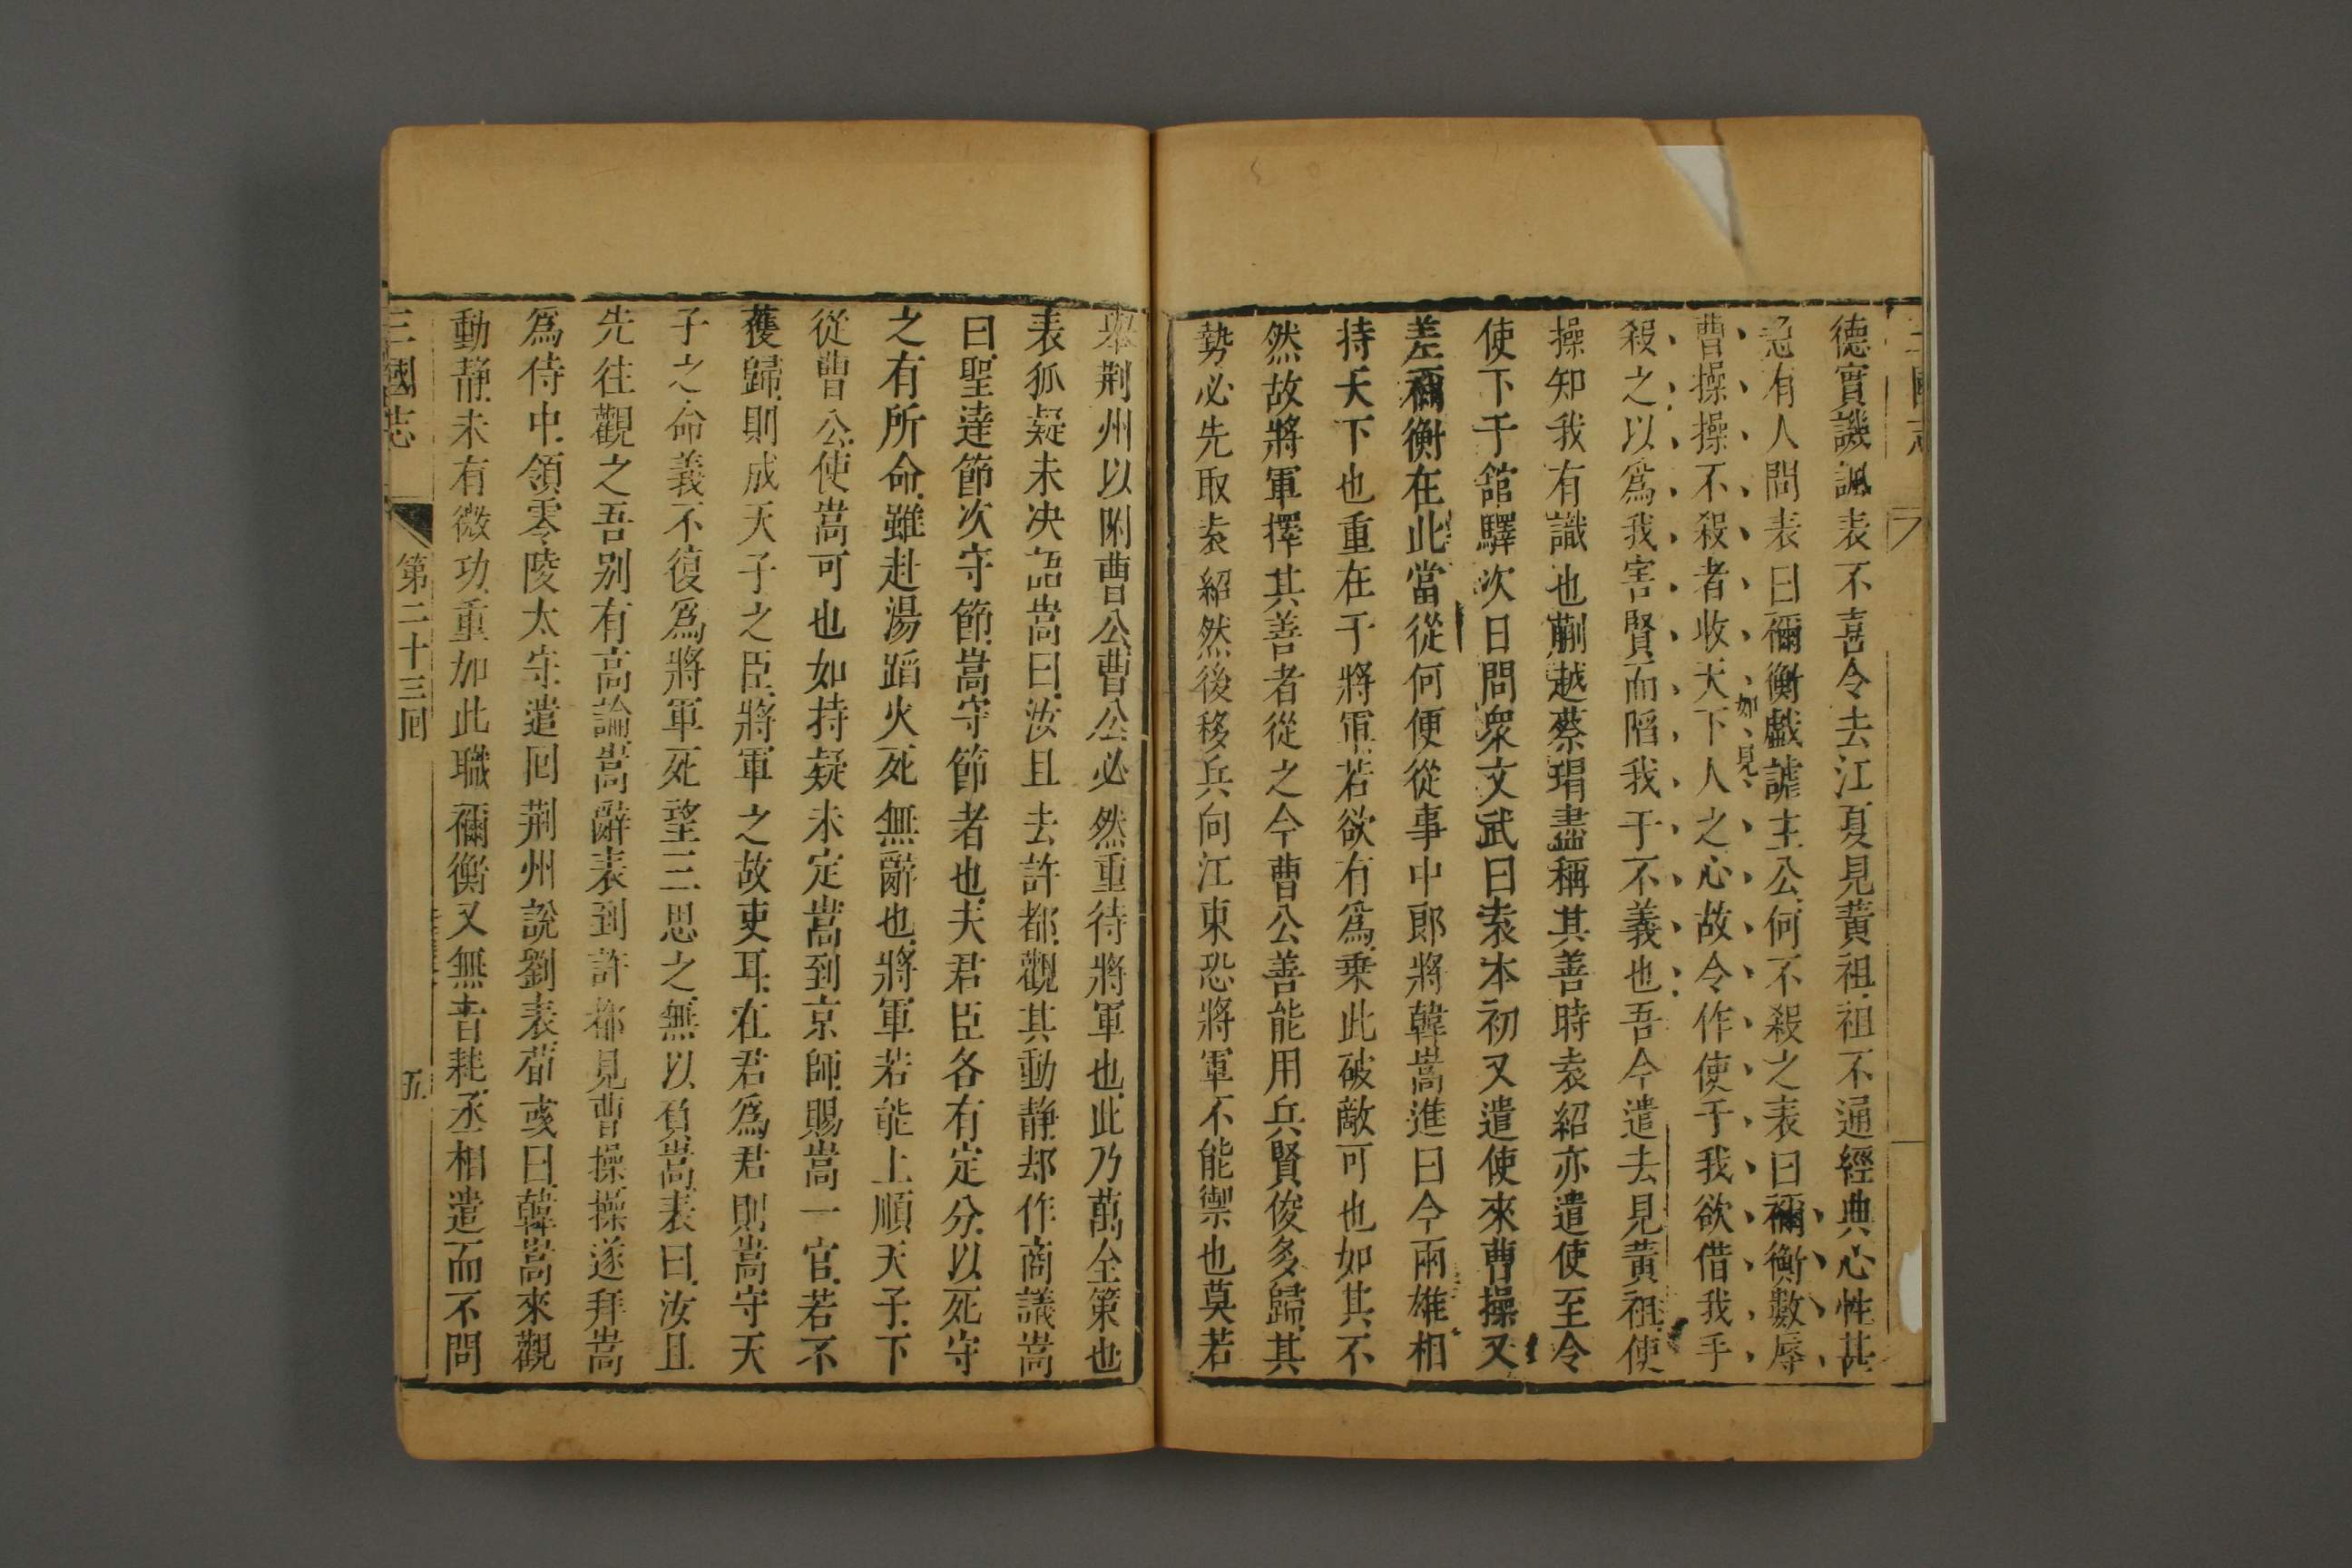 德實譏諷表不喜令去江夏見黃祖祖不通經典心性甚
急有人問表曰禰衡戲謔主公何不殺之表曰禰衡數辱
如見
曹操操不殺者收天下人之心故令作使于我欲借我手
殺之以爲我害賢而陷我于不義也吾今遣去見黃祖使
操知我有識也蒯越蔡瑁盡稱其善時袁紹亦遣使至令
使下于舘驛次日問衆文武曰袁本初又遣使來曹操又
差禰衡在此當從何便從事中郎將韓嵩進曰今兩雄相
持天下也重在于將軍若欲有爲乗此破敵可也如其不
然故將軍擇其善者從之今曹公善能用兵賢俊多歸其
勢必先取袁紹然後移兵向江東恐將軍不能禦也莫若
舉荆州以附曹公曹公必然重待將軍也此乃萬全策也
表狐疑未决語嵩曰汝且去許都觀其動静却作商議嵩
曰聖達節次守節嵩守節者也夫君臣各有定分以死守
之有所命雖赴湯蹈火死無辭也將軍若能上順天子下
從曹公使嵩可也如持疑未定嵩到京師賜嵩一官若不
獲歸則成天子之臣將軍之故吏耳在君爲君則嵩守天
子之命義不復爲將軍死望三思之無以負嵩表曰汝且
先往觀之吾别有高論嵩辭表到許都見曹操操遂拜嵩
爲侍中領零陵太守遣回荆州說劉表荀彧曰韓嵩來觀
動静未有微功重加此職禰衡又無音耗丞相遣而不問
三國志 第二十三回 五